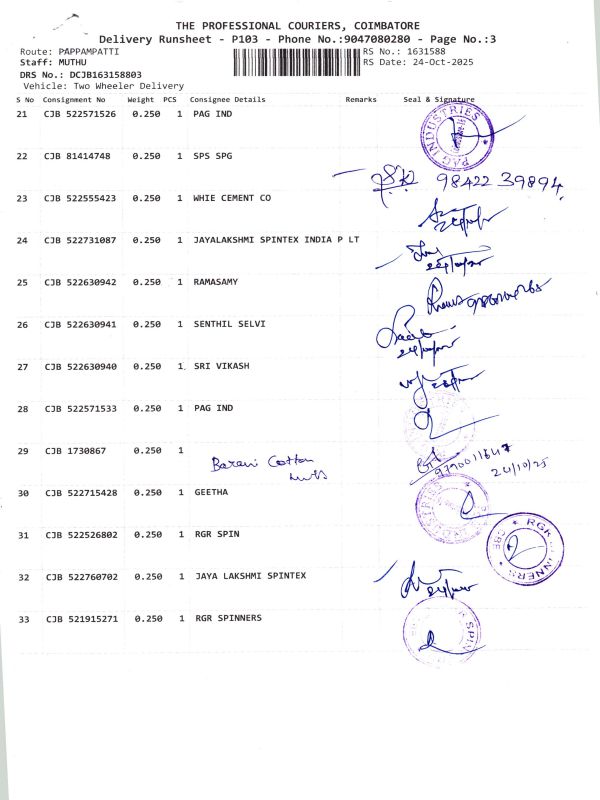 THE PROFESSIONAL COURIERS, COIMBATORE
Delivery Runsheet - P103 - Phone No.:9047080280 - Page No.:3
Route: PAPPAMPATTI RS No.: 1631588
Staff: MUTHU RS Date: 24-Oct-2025
DRS No.: DCJB163158803
Vehicle: Two Wheeler Delivery
S No Consignment No Weight PCS Consignee Details Remarks Seal & Signature
21 CJB 522571526 0.250 1 PAG IND
PAG INDUSTRIES
22 CJB 81414748 0.250 1 SPS SPG
98422 39894
23 CJB 522555423 0.250 1 WHIE CEMENT CO
24 CJB 522731087 0.250 1 JAYALAKSHMI SPINTEX INDIA P LT
25 CJB 522630942 0.250 1 RAMASAMY
26 CJB 522630941 0.250 1 SENTHIL SELVI
27 CJB 522630940 0.250 1 SRI VIKASH
28 CJB 522571533 0.250 1 PAG IND
29 CJB 1730867 0.250 1
Barani Cotton
24/10/25
30 CJB 522715428 0.250 1 GEETHA
31 CJB 522526802 0.250 1 RGR SPIN
32 CJB 522760702 0.250 1 JAYA LAKSHMI SPINTEX
33 CJB 521915271 0.250 1 RGR SPINNERS